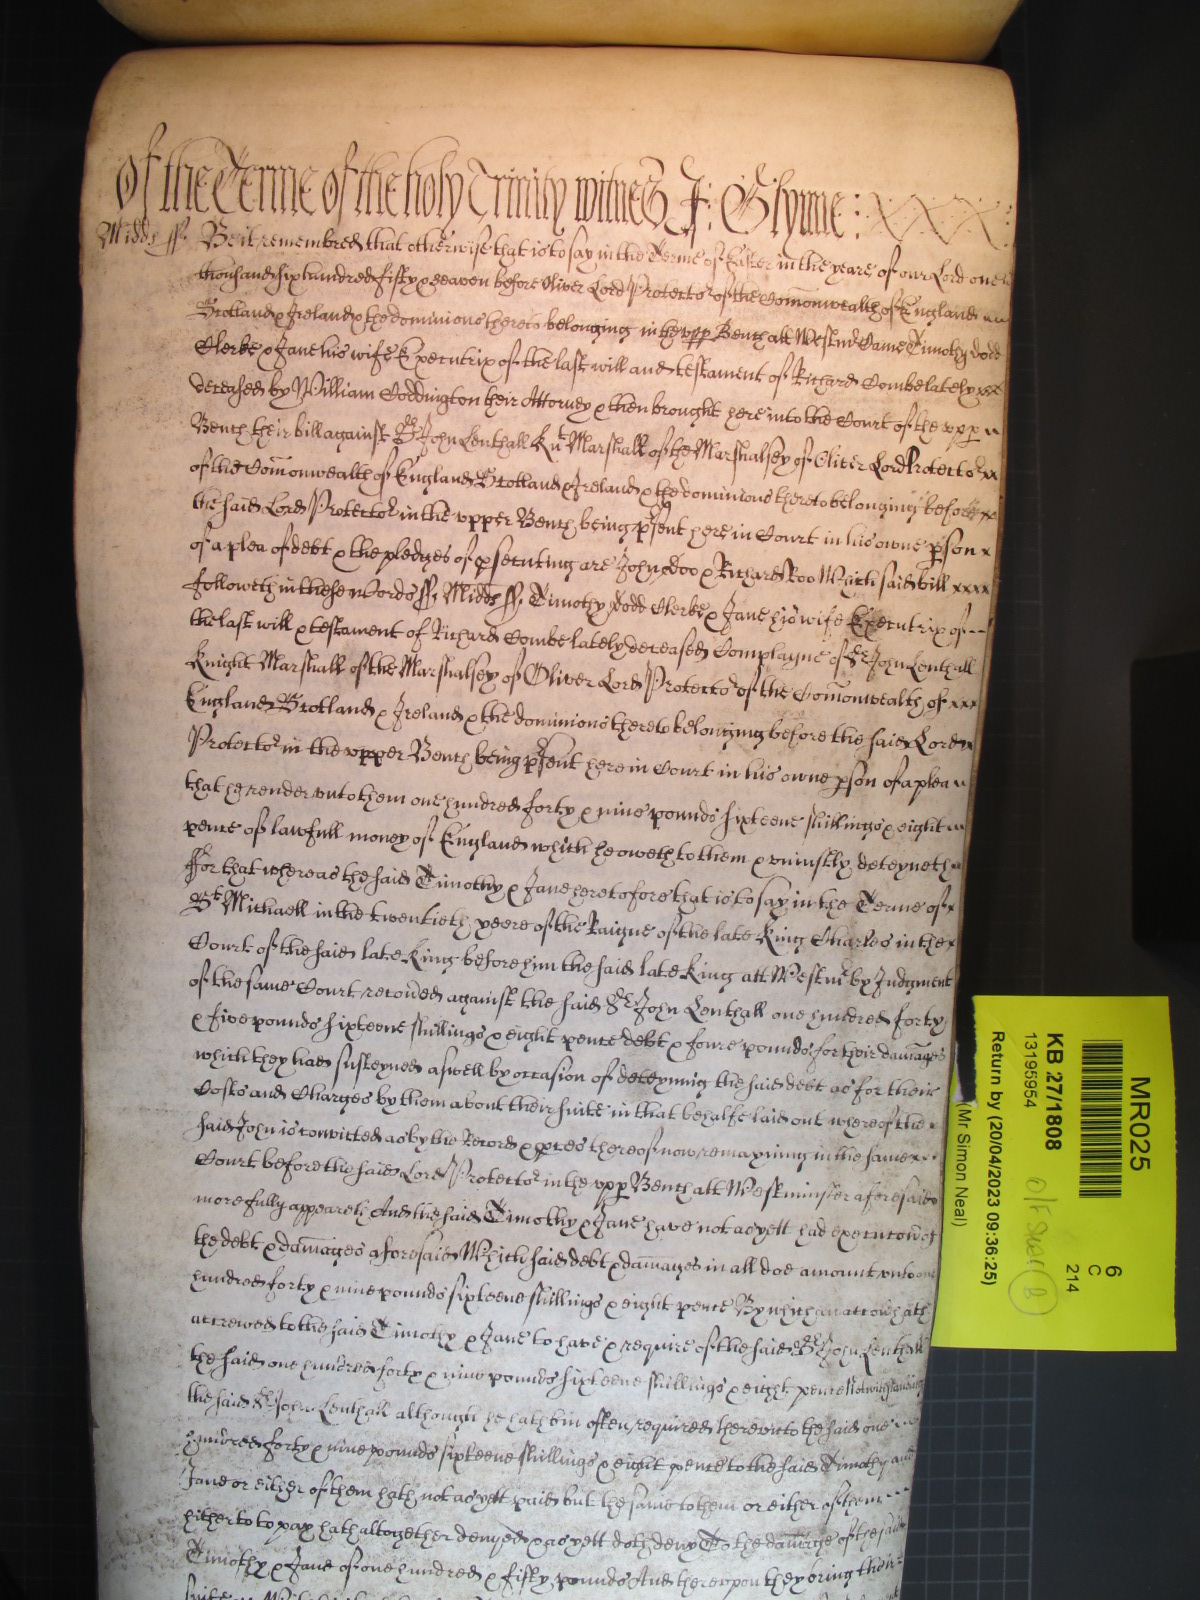 Of the Terme of the holy Trinity witnes J: Glynne :
Midds ss. Be it remembred that otherwise that is to say in the Terme of Easter in the yeare of our Lord one
thousand six hundred fifty & seaven before Oliver Lord Protector of the Comonwealth of England
Scotland & Ireland & the dominions thereto belonging in the vpp Bench att Westmr Came Timothy Dodd
Clerke & Jane his wife Executrix of the last will and testament of Richard Combe lately
deceased by William Coddington their Attorney & then brought here into the Court of the vpp
Bench their bill against Sr John Lenthall Knt Marshall of the Marshalsey of Oliver Lord Protector
of the Comonwealth of England Scotland & Ireland & the dominions thereto belonging before
the said Lord Protector in the vpper Bench being psent here in Court in his owne pson
of a plea of debt & the pledges of psecuting are John Doo & Richard Roo Which said bill
followeth in these words ss. Midds ss. Timothy Dodd Clerke & Jane his wife Executrix of
the last will & testament of Richard Combe lately deceased Complayne of Sr John Lenthall
Knight Marshall of the Marshalsey of Oliver Lord Protector of the Comonwealth of
England Scotland & Ireland & the dominions thereto belonging before the said Lord
Protector in the vpper Bench being psent here in Court in his owne pson of a plea
that he render vnto them one hundred forty & nine pounds sixteene shillings & eight
pence of lawfull money of England which he oweth to them & vniustly deteyneth
For that whereas the said Timothy & Jane heretofore that is to say in the Terme of
St Michaell in the twentieth yeere of the Raigne of the late King Charles in the
Court of the said late King before him the said late King att Westmr by Judgment
of the same Court recoued against the said Sr John Lenthall one hundred forty
& five pounds sixteene shillings & eight pence debt & foure pounds for their damages
which they had susteyned aswell by occasion of deteyning the said debt as for their
Costs and Charges by them about their suite in that behalfe laid out whereof the
said John is convicted as by the Record & pces thereof now remayning in the same
Court before the said Lord Protector in the vpp Bench att Westminster aforesaid
more fully appeareth And the said Timothy & Jane have not as yett had execucon of
the debt & damages aforesaid Which said debt & damages in all doe amount vnto one
hundred forty & nine pounds sixteene shillings & eight pence By which an accon hath
accrewed to the said Timothy & Jane to have & require of the said Sr John Lenthall
the said one hundred forty & nine pounds sixteene shillings & eight pence Notwithstanding
the said Sr John Lenthall although he hath bin often required therevnto the said one
hundred forty & nine pounds sixteene shillings & eight pence to the said Timothy and
Jane or either of them hath not as yett paid but the same to them or either of them
hitherto to pay hath altogether denyed & as yett doth deny To the damage of the said
Timothy & Jane of one hundred & fifty pounds And therevpon they bring their
suite
MR025
6
C
214
KB 27/1808
13195954
Return by (20/04/2023 09:36:25)
(Mr Simon Neal)